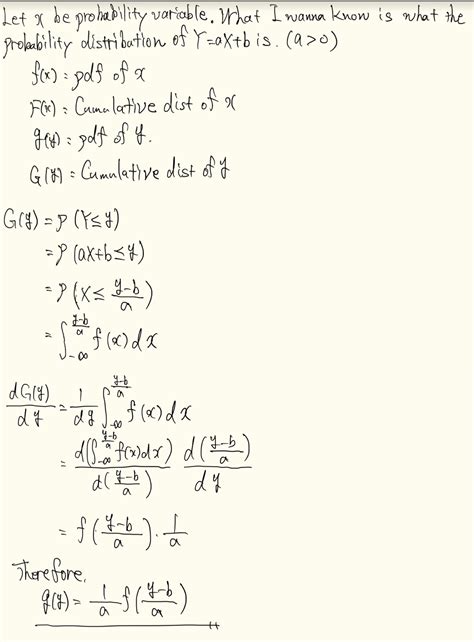 Let x be probability variable. What I wanna know is what the
probability distribution of Y=aX+b is. (a>0)
f(x) : pdf of x
F(x) : Cumulative dist of x
g(y) : pdf of y.
G(y) : Cumulative dist of y
G(y) = P (Y≤y)
= P (aX+b≤y)
= P (X≤ (y-b)/a)
= ∫_{-∞}^{(y-b)/a} f(x) dx
dG(y)/dy = 1/dy ∫_{-∞}^{(y-b)/a} f(x) dx
= d(∫_{-∞}^{(y-b)/a} f(x)dx)/d((y-b)/a) d((y-b)/a)/dy
= f((y-b)/a) · 1/a
Therefore,
g(y) = 1/a f((y-b)/a)